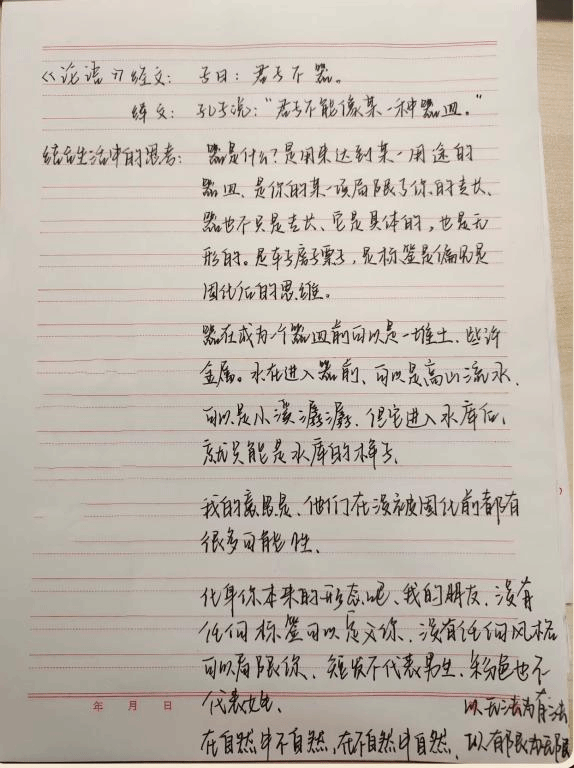 《论语》经文：子曰：君子不器。
译文：孔子说："君子不能像某一种器皿。"
结合生活中的思考：器是什么？是用来达到某一用途的
器皿、是你的某一项局限了你的专长、
器也不只是专长、它是具体的，也是无
形的。是车子房子票子，是标签是偏见是
固化后的思维。
器在成为一个器皿前可以是一堆土、些许
金属。水在进入器前、可以是高山流水、
可以是小溪潺潺、但它进入水库后、
就只能是水库的样子、
我的意思是、他们在没被固化前都有
很多可能性、
化身你本来的形态吧、我的朋友、没有
任何标签可以定义你、没有任何风格
可以局限你、短发不代表男生、粉色也不
代表女生、
以无法为有法
在自然中不自然，在不自然中自然、以有限为无限
年 月 日